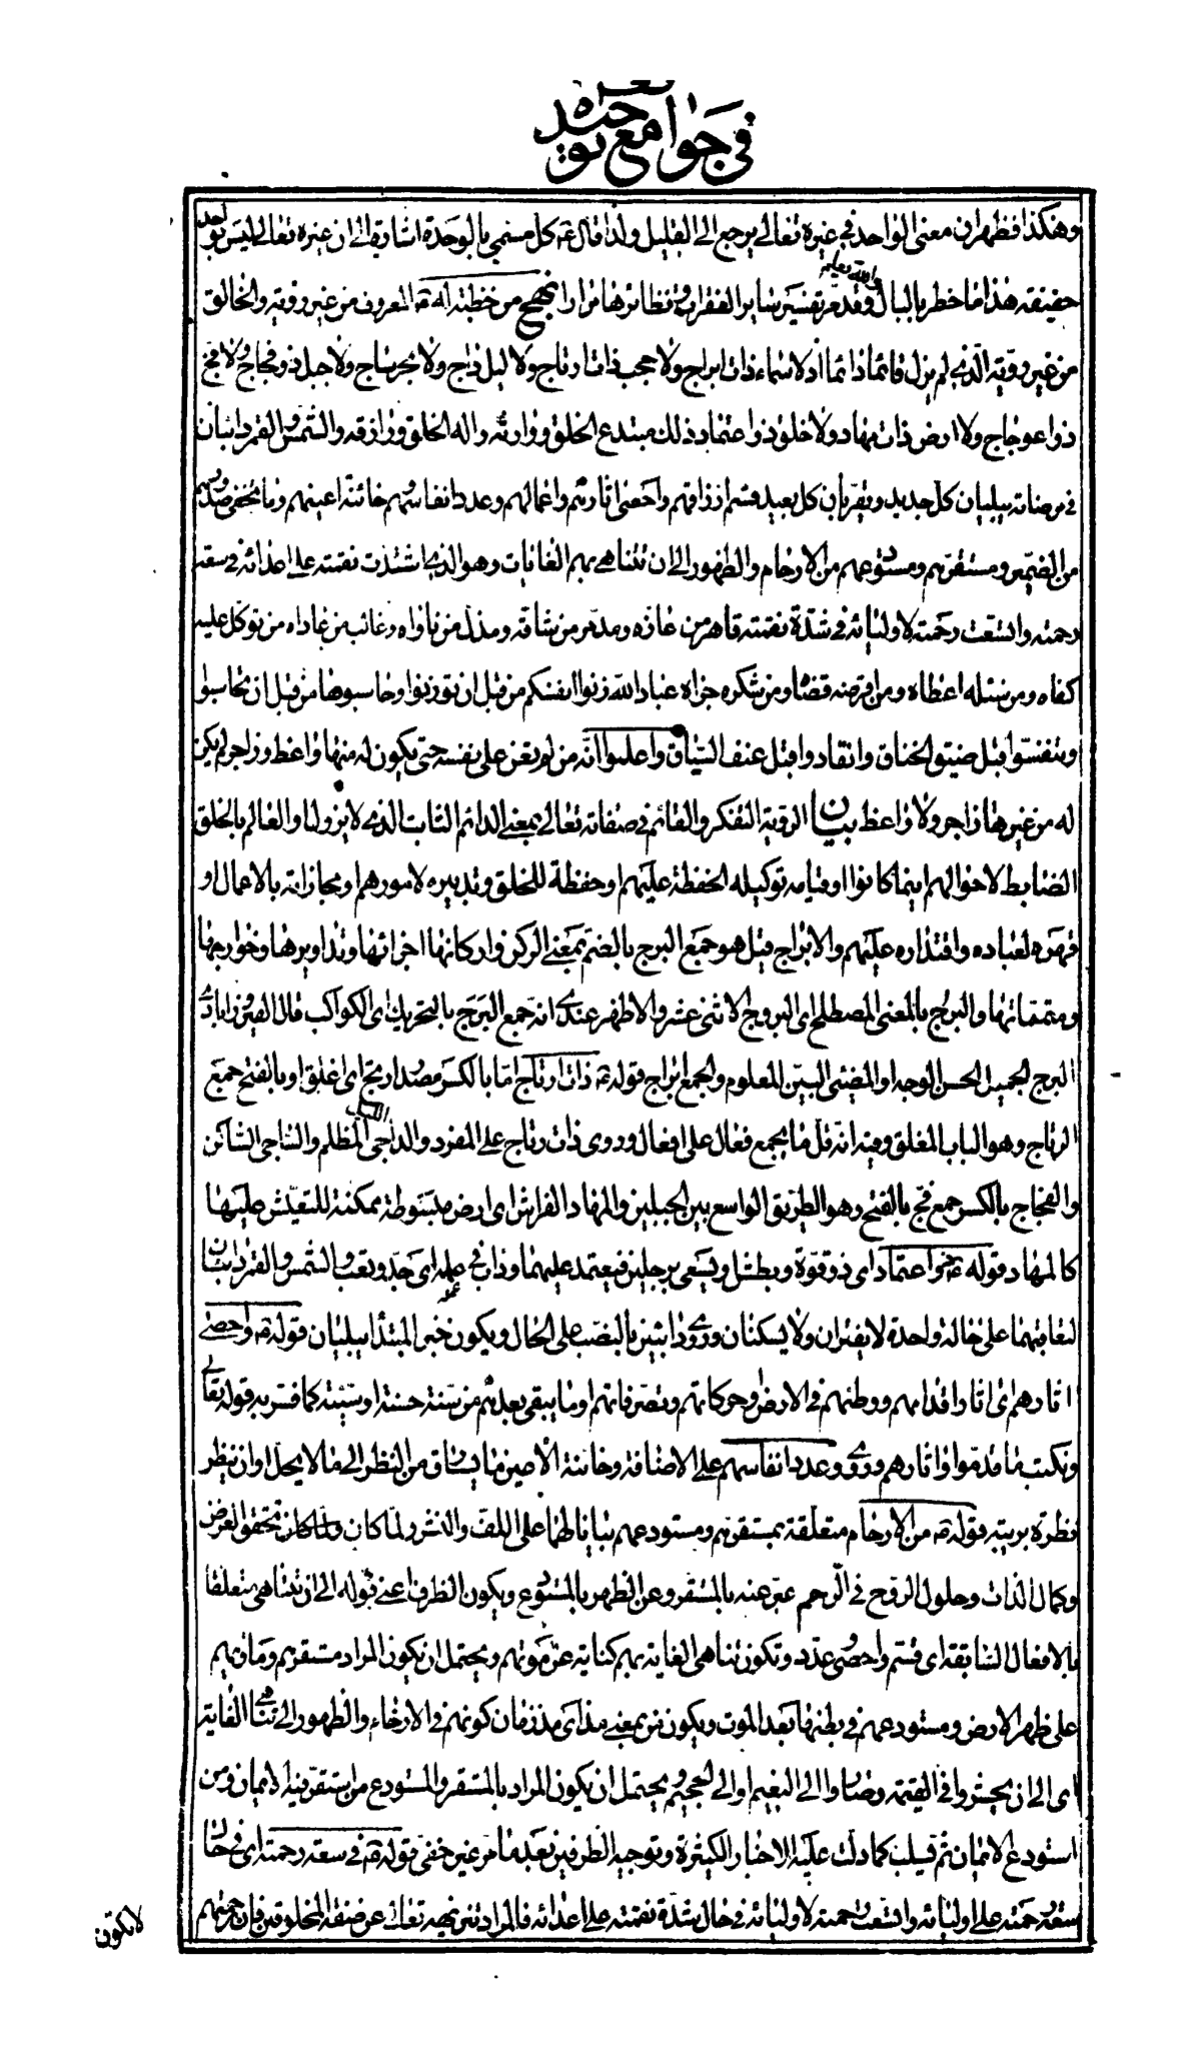 في جوامع توحيده
وهكذا فظهر ان معنى الواحد في غيره تعالى يرجع الى القليل ولذا قال ع كل مسمى بالوحدة اشارة الى ان غيره تعالى ليس بواحد
حقيقة هذا ما خطر بالبال والله يعلم وقد مر تفسير سائر الفقرات ونظائرها مرارا نهج من خطبة له ع المعروف من غير روية والخالق
من غير روية الذي لم يزل قائما دائما اذ لا سماء ذات ابراج ولا حجب ذات ارتاج ولا ليل داج ولا بحر ساج ولا جبل ذو فجاج ولا فج
ذو اعوجاج ولا ارض ذات مهاد ولا خلق ذو اعتماد ذلك مبتدع الخلق ووارثه واله الخلق ورازقه والشمس والقمر دائبان
في مرضاته يبليان كل جديد ويقربان كل بعيد قسم ارزاقهم واحصى اثارهم واعمالهم وعدد انفاسهم وخائنة اعينهم وما تخفي صدورهم
من الضمير ومستقرهم ومستودعهم من الارحام والظهور الى ان تتناهى بهم الغايات وهو الذي اشتدت نقمته على اعدائه في سعة
رحمته واتسعت رحمته لاوليائه في شدة نقمته قاهر من عازه ومدمر من شاقه ومذل من ناواه وغالب من عاداه من توكل عليه
كفاه ومن سئله اعطاه ومن اقرضه قضاه ومن شكره جزاه عباد الله زنوا انفسكم من قبل ان توزنوا وحاسبوها من قبل ان تحاسبوا
وتنفسوا قبل ضيق الخناق وانقادوا قبل عنف السياق واعلموا انه من لم يعن على نفسه حتى يكون له منها واعظ وزاجر لم يكن
له من غيرها زاجر ولا واعظ بيان الروية التفكر والقائم في صفاته تعالى بمعنى الدائم الثابت الذي لا يزول او العالم بالخلق
الضابط لاحوالهم اينما كانوا او قيامه توكيله الحفظة عليهم او حفظه للخلق وتدبيره لامورهم او مجازاته بالاعمال او
قهره لعباده واقتداره عليهم والابراج قيل هو جمع البرج بالضم بمعنى الركن واركانها اجزائها وتداويرها وخوارجها
ومتمماتها والبرج بالمعنى المصطلح اي البروج الاثنى عشر والاظهر عندي انه جمع البرج بالتحريك اي الكواكب قال الفيروزابادي
البرج الجميل الحسن الوجه او المضئ البين المعلوم والجمع ابراج قوله ع ذات ارتاج اما بالكسر مصدر ارتج اي اغلق او بالفتح جمع
الرتاج وهو الباب المغلق وفيه انه قل ما يجمع فعال على افعال وروي ذات رتاج على المفرد والداجي المظلم والساجي الساكن
والفجاج بالكسر جمع فج بالفتح وهو الطريق الواسع بين الجبلين والمهاد الفراش اي ارض مبسوطة ممكنة للتعيش عليها
كالمهاد قوله ع ذو اعتماد اي ذو قوة وبطش ويسعى برجلين فيعتمد عليهما ودأب في عمله اي جد وتعب والشمس والقمر دائبان
لتعاقبهما على حالة واحدة لا يفتران ولا يسكنان وروي دائبين بالنصب على الحال ويكون خبر المبتدا يبليان قوله ع واحصى
اثارهم اي اثار اقدامهم ووطئهم في الارض او حركاتهم وتصرفاتهم او ما يبقى بعدهم من سنة حسنة او سيئة كما فسر به قوله تعالى
ونكتب ما قدموا واثارهم وروي وعدد انفاسهم على الاضافة وخائنة الاعين ما يسارق من النظر الى ما لا يحل او ان ينظر
نظرة بريبة قوله ع من الارحام متعلقة بمستقرهم ومستودعهم بيانا لهما على اللف والنشر ولما كان تحقق الغرض
وكمال الذات وحلول الروح في الرحم عبر عنه بالمستقر وعن الظهر بالمستودع ويكون الظرف اعني قوله الى ان تتناهى متعلقا
بالافعال السابقة اي قسم واحصى وعدد وتكون تناهي الغاية بهم كناية عن موتهم ويحتمل ان يكون المراد مستقرهم وماواهم
على ظهر الارض ومستودعهم في بطنها بعد الموت ويكون من بمعنى مذ اي مذ زمان كونهم في الارحام والظهور الى تناهي الغاية
اي الى ان يحشروا في القيمة وصاروا الى النعيم او الى الجحيم ويحتمل ان يكون المراد بالمستقر والمستودع من استقر فيه الايمان ومن
استودع الايمان ثم يسلب كما دلت عليه الاخبار الكثيرة وتوجيه الظرفين بعد ما مر غير خفي قوله ع في سعة رحمته اي في حال
سعة رحمته على اوليائه واتسعت رحمته لاوليائه في حال شدة نقمته على اعدائه فالمراد تنزيهه تعالى عن صفة المخلوقين فان رحمتهم
لا تكون